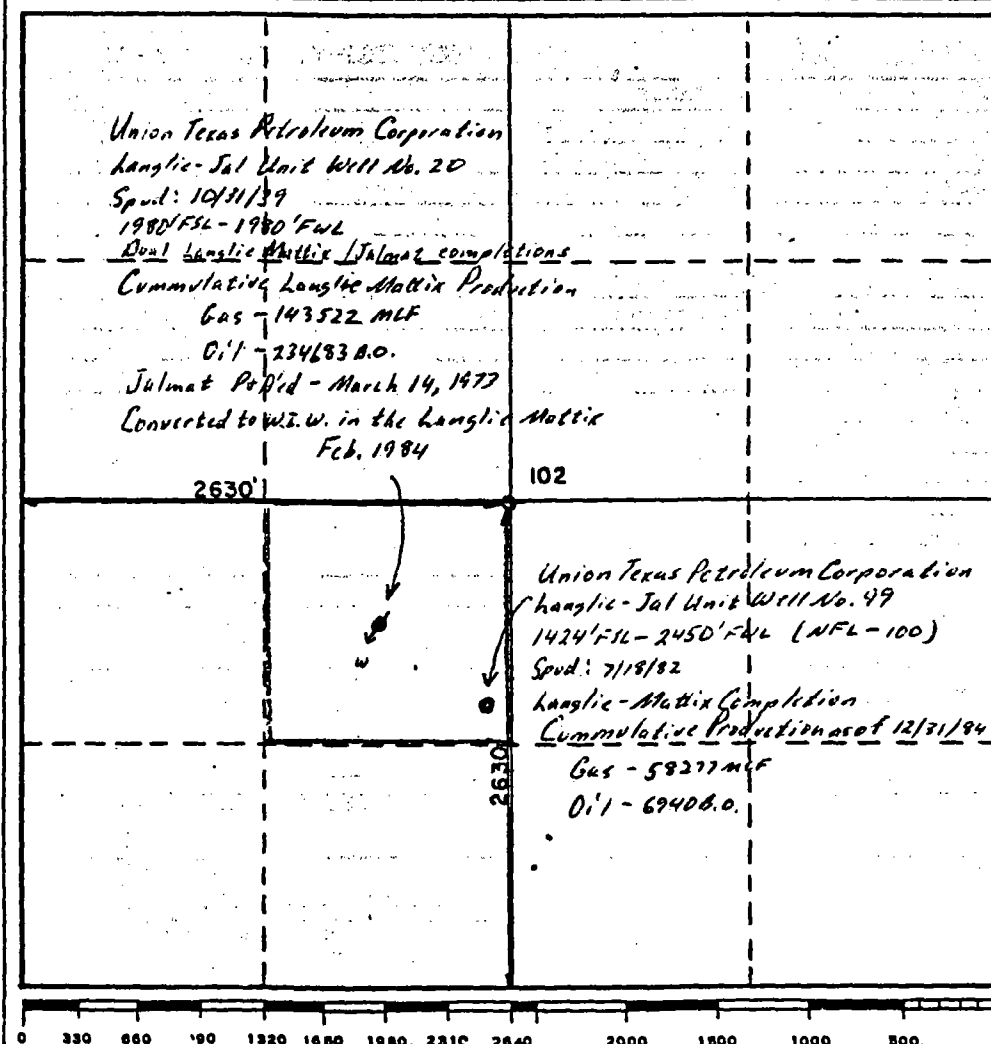 Union Texas Petroleum Corporation
Langlie-Jal Unit Well No. 20
Spud: 10/31/39
1980'FSL-1980'FWL
Dual Langlie Mattix/Jalmat completions
Cummulative Langlie Mattix Production
Gas - 143522 MCF
Oil - 234683 B.O.
Jalmat P&A'ed - March 14, 1977
Converted to W.I.W. in the Langlie Mattix
Feb. 1984
2630'
102
W
Union Texas Petroleum Corporation
Langlie-Jal Unit Well No. 99
1424'FSL-2450'FWL (NFL-100)
Spud: 7/18/82
Langlie-Mattix Completion
Cummulative Production as of 12/31/84
Gas - 58277 MCF
Oil - 6940 B.O.
2630'
0 330 660 '90 1320 1650 1980 2310 2640 2000 1500 1000 500